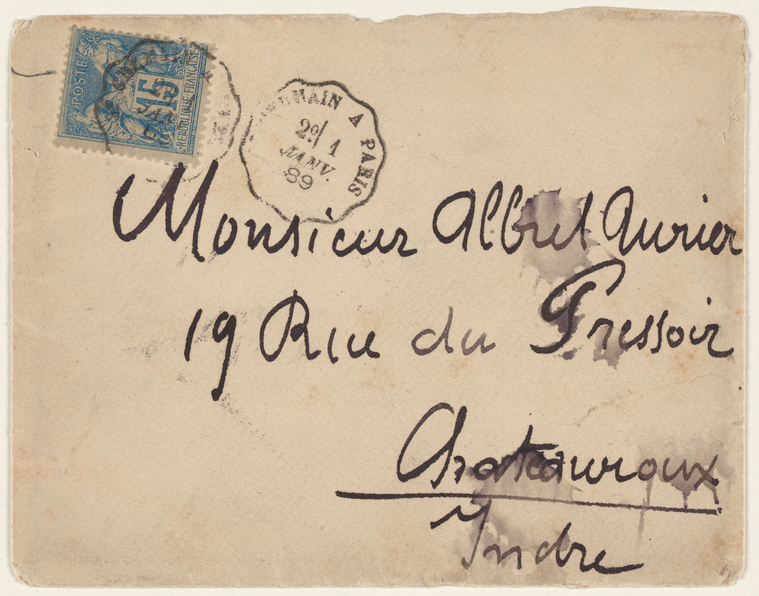 POSTE
15
REPUBLIQUE FRANÇAISE
JAN
MAIN A PARIS
2º/ 1
JANV.
89
Monsieur Albret Aurier
19 Rue du Pressoir
Chateauroux
Indre